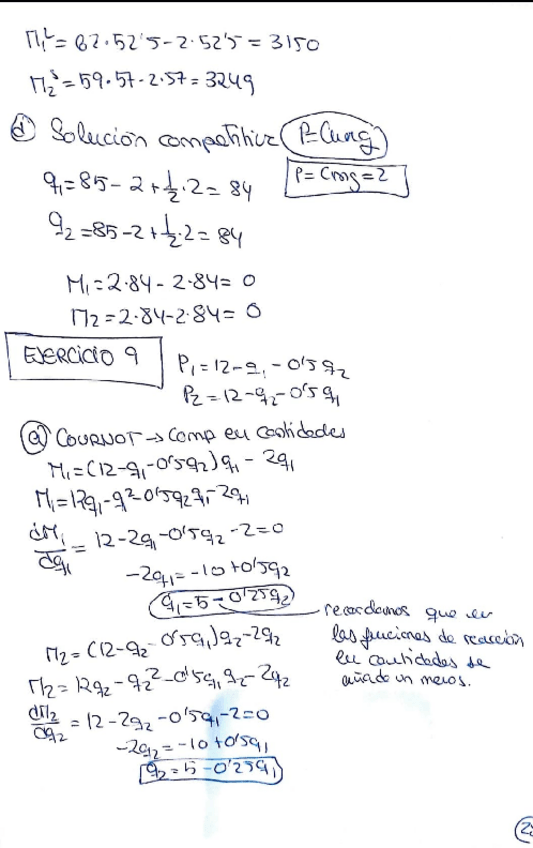 Π₁ᴸ = 62·52'5 - 2·52'5 = 3150
Π₂ˢ = 59·57 - 2·57 = 3249
d) Solución competitiva (P=Cmg)
q₁ = 85 - 2 + 1/2·2 = 84
P = Cmg = 2
q₂ = 85 - 2 + 1/2·2 = 84
Π₁ = 2·84 - 2·84 = 0
Π₂ = 2·84 - 2·84 = 0
EJERCICIO 9
P₁ = 12 - q₁ - 0'5q₂
P₂ = 12 - q₂ - 0'5q₁
a) COURNOT → Comp en cantidades
Π₁ = (12 - q₁ - 0'5q₂)q₁ - 2q₁
Π₁ = 12q₁ - q₁² - 0'5q₂q₁ - 2q₁
dΠ₁/dq₁ = 12 - 2q₁ - 0'5q₂ - 2 = 0
-2q₁ = -10 + 0'5q₂
q₁ = 5 - 0'25q₂
recordamos que en
las funciones de reacción
en cantidades se
añade un menos.
Π₂ = (12 - q₂ - 0'5q₁)q₂ - 2q₂
Π₂ = 12q₂ - q₂² - 0'5q₁q₂ - 2q₂
dΠ₂/dq₂ = 12 - 2q₂ - 0'5q₁ - 2 = 0
-2q₂ = -10 + 0'5q₁
q₂ = 5 - 0'25q₁